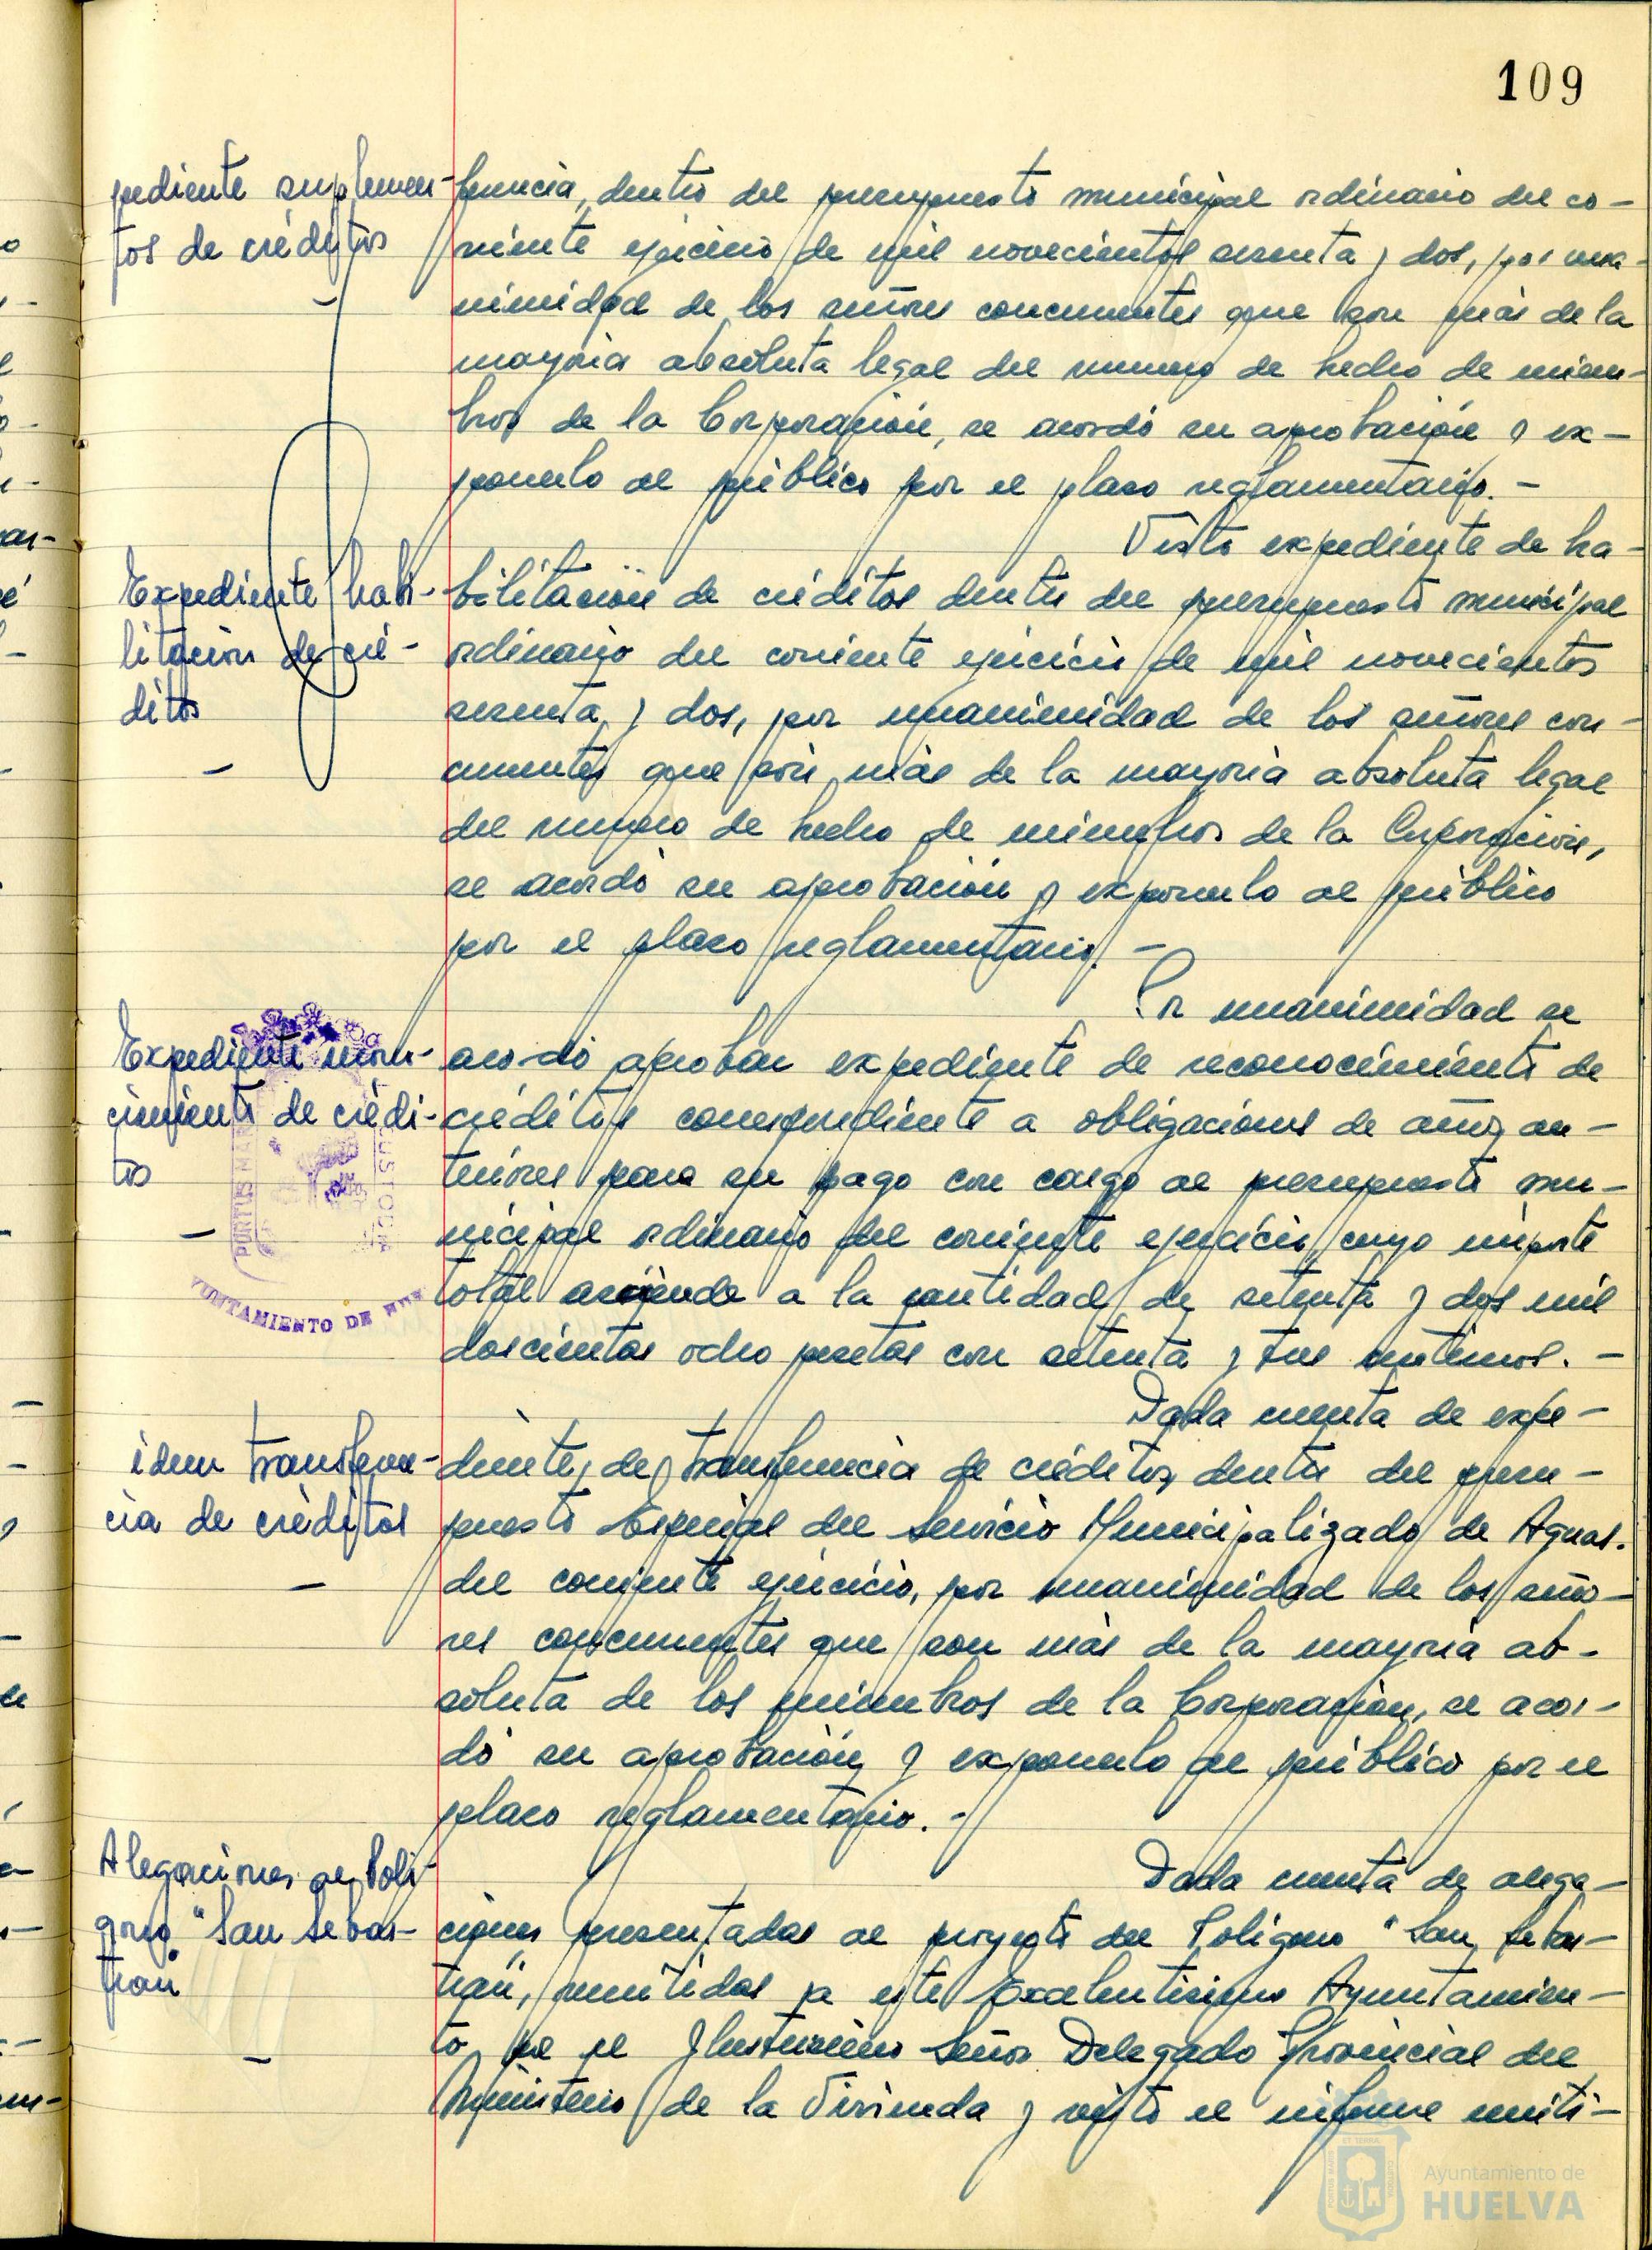 109
pediente suplemen-
tos de créditos
ferencia, dentro del presupuesto municipal ordinario del co-
rriente ejercicio de mil novecientos sesenta y dos, por una-
nimidad de los señores concurrentes que son más de la
mayoría absoluta legal del numero de hecho de miem-
bros de la Corporación, se acordó su aprobación y ex-
ponerlo al público por el plazo reglamentario. -
Visto expediente de ha-
Expediente habi-
litación de cré-
ditos
bilitación de créditos dentro del presupuesto municipal
ordinario del corriente ejercicio de mil novecientos
sesenta y dos, por unanimidad de los señores con-
currentes que son más de la mayoría absoluta legal
del numero de hecho de miembros de la Corporación,
se acordó su aprobación y exponerlo al público
por el plazo reglamentario. -
Por unanimidad se
Expediente recono-
cimiento de crédi-
tos
acordó aprobar expediente de reconocimiento de
créditos correspondiente a obligaciones de años an-
teriores para su pago con cargo al presupuesto mu-
nicipal ordinario del corriente ejercicio cuyo importe
total asciende a la cantidad de setenta y dos mil
doscientas ocho pesetas con setenta y tres centimos. -
PORTUS MARIS
CUSTODIA
YUNTAMIENTO DE HUE
Dada cuenta de expe-
idem transferen-
cia de créditos
diente de transferencia de créditos dentro del presu-
puesto Especial del Servicio Municipalizado de Aguas.
del corriente ejercicio, por unanimidad de los seño-
res concurrentes que son más de la mayoría ab-
soluta de los miembros de la Corporación, se acor-
dó su aprobación y exponerlo al público por el
plazo reglamentario. -
Alegaciones al Polí-
gono "San Sebas-
tián"
Dada cuenta de alega-
ciones presentadas al proyecto del Polígono "San Sebas-
tián", remitidas a este Excelentísimo Ayuntamien-
to por el Ilustrísimo Señor Delegado Provincial del
Ministerio de la Vivienda y visto el informe emiti-
Ayuntamiento de
HUELVA